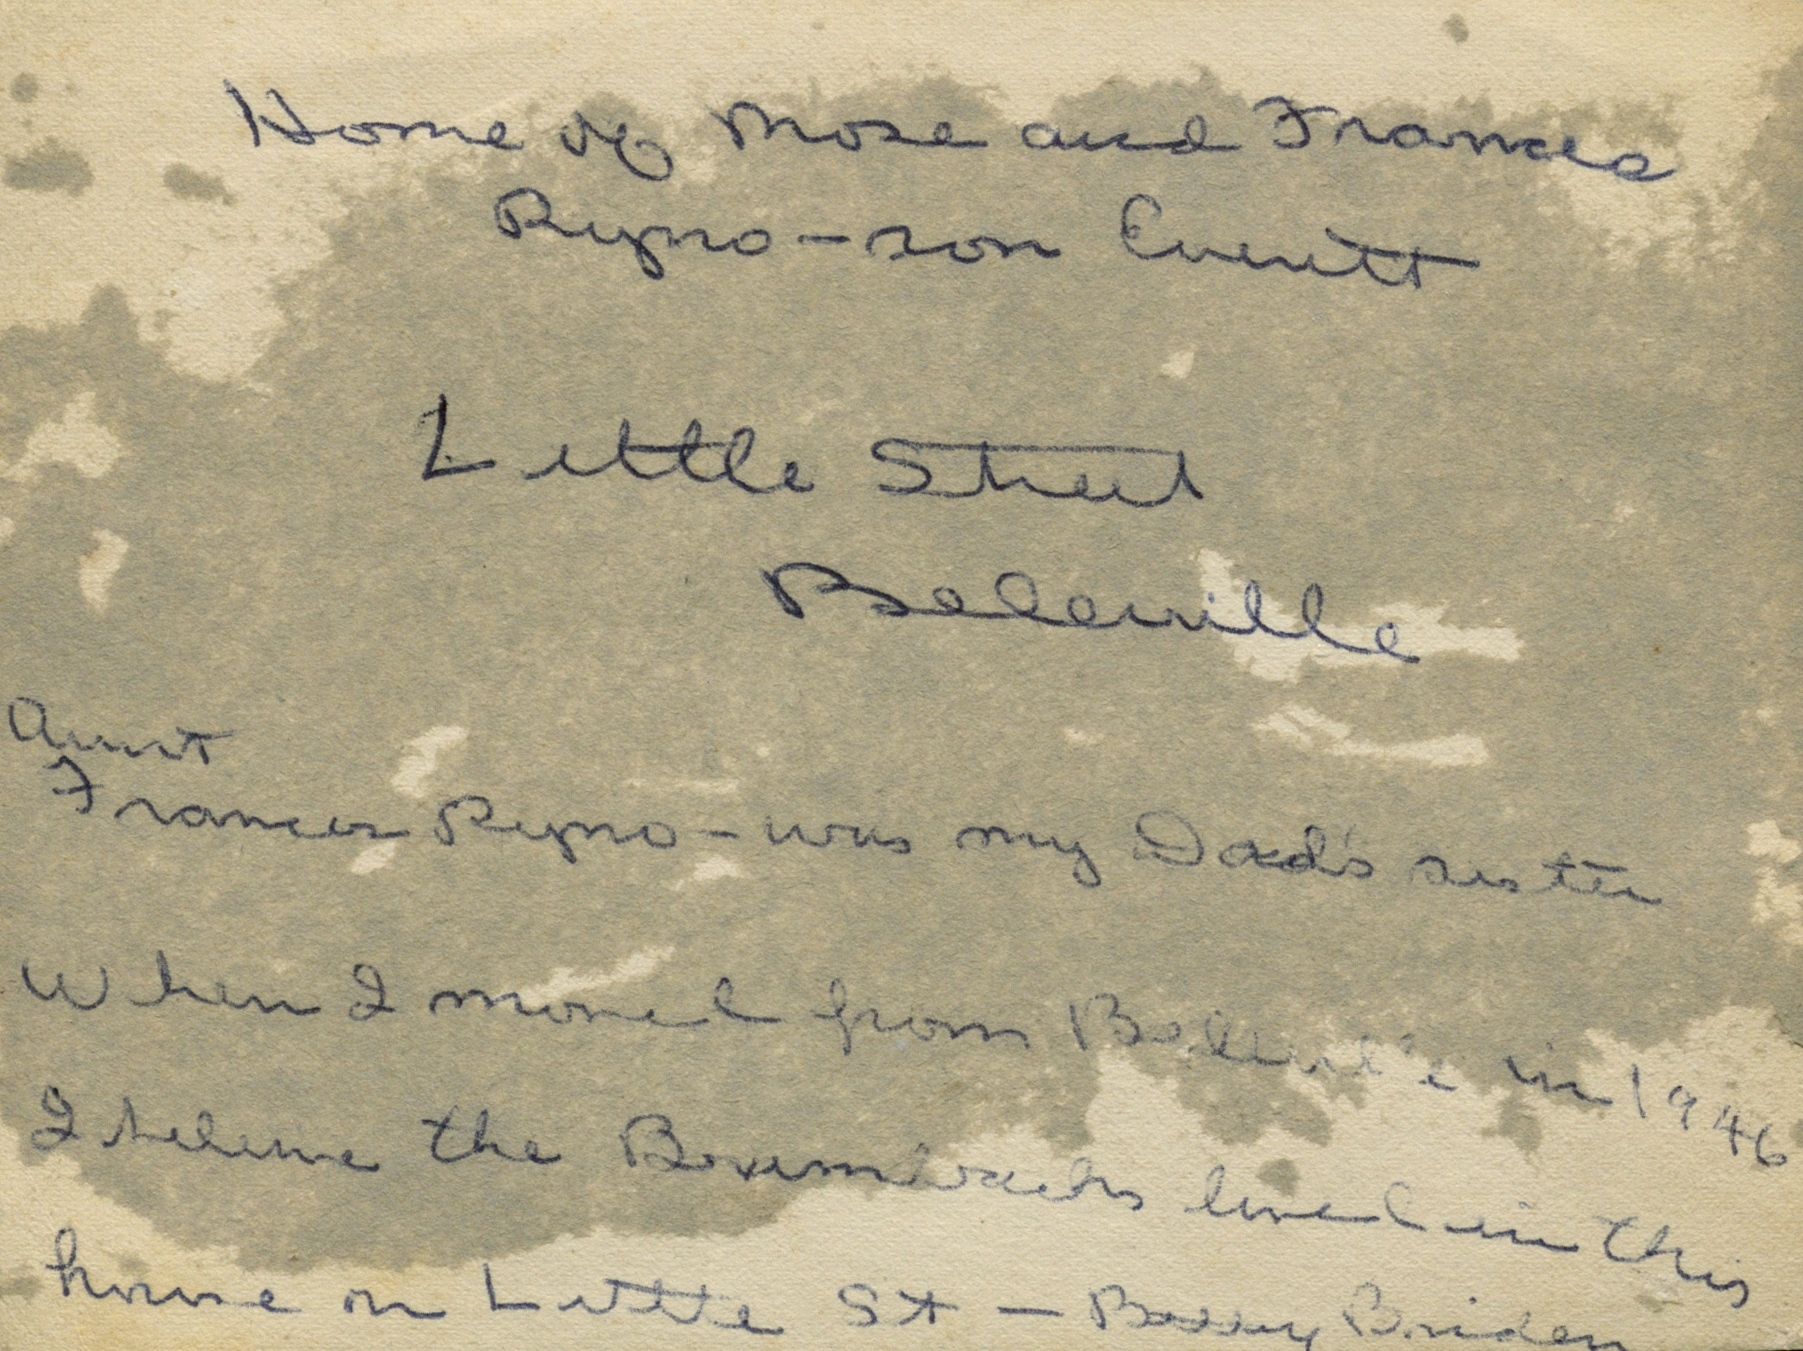 Home of Mose and Frances
Ryno - son Everitt
Little Street
Belleville
Aunt
Frances Ryno - was my Dad's sister
When I moved from Belleville in 1946
I believe the lived in this
house on Little St -